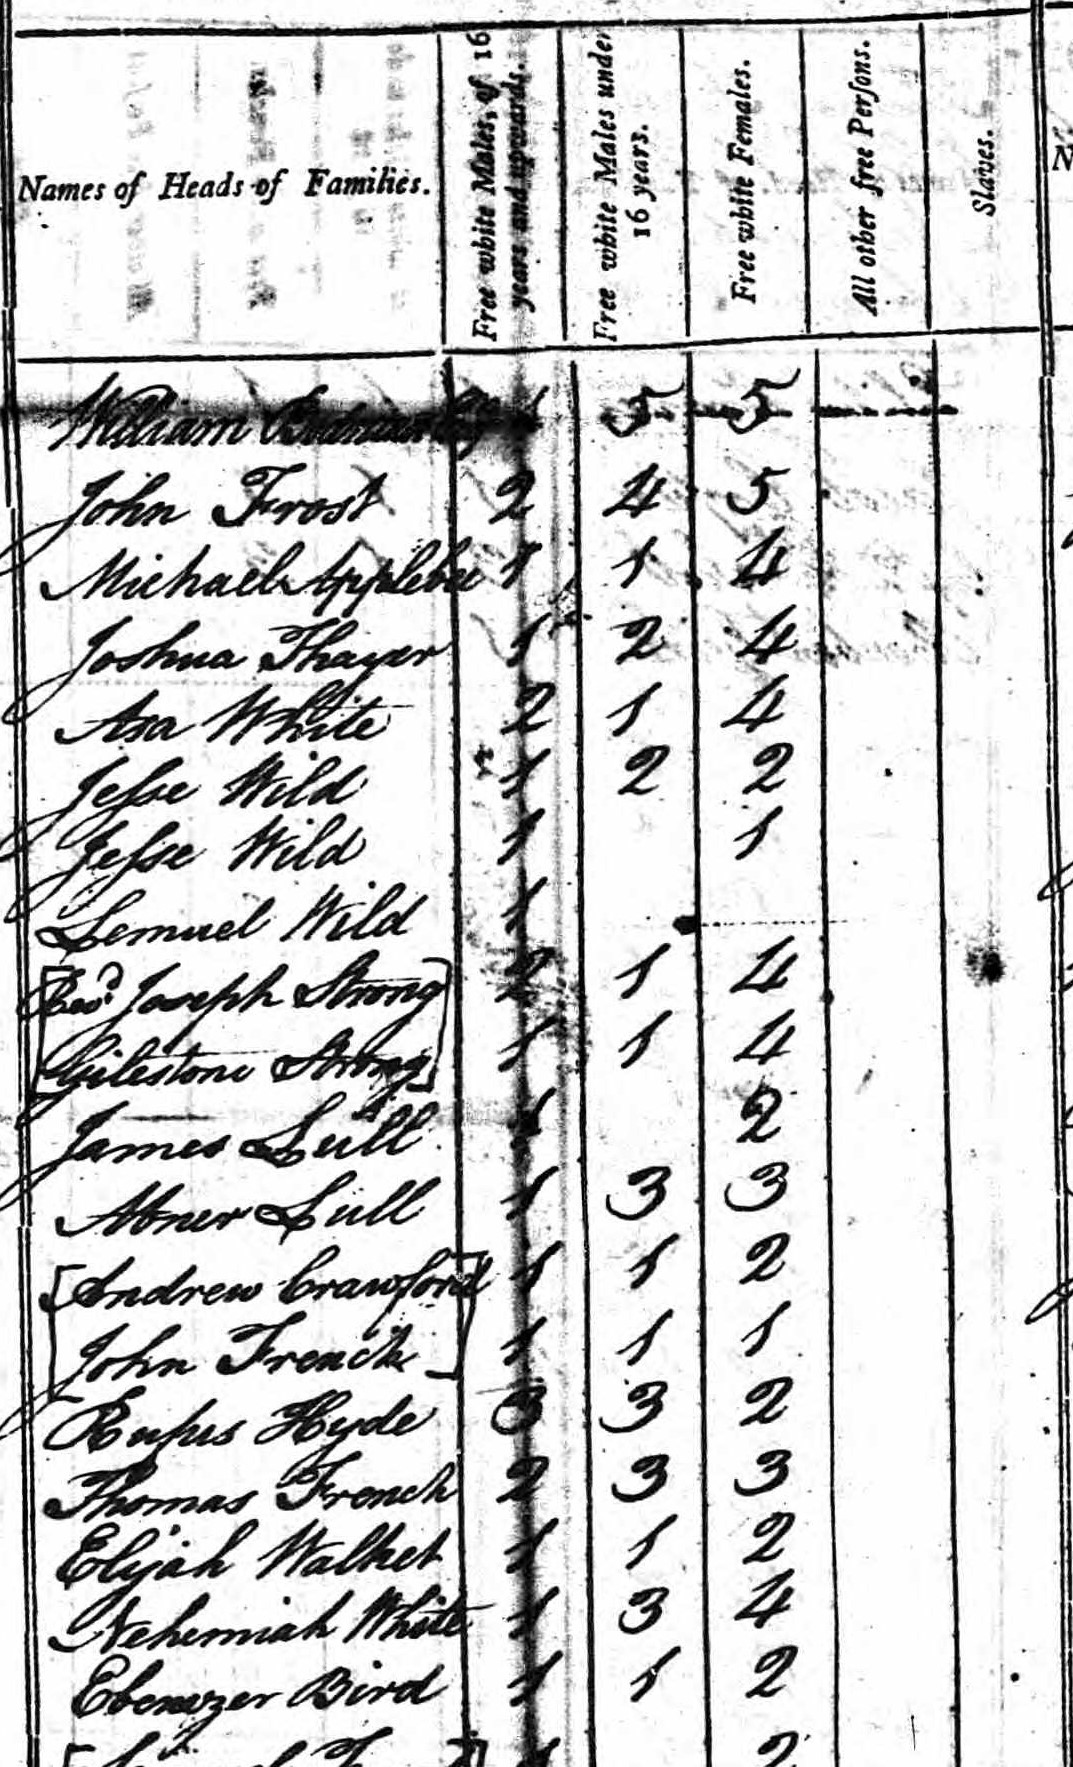 Names of Heads of Families. Free white Males, of 16 years and upwards. Free white Males under 16 years. Free white Females. All other free Persons. Slaves.
William 5 5
John Frost 2 4 5
Michael Applebee 1 1 4
Joshua Thayer 1 2 4
Asa White 2 1 4
Jesse Wild 1 2 2
Jesse Wild 1 1
Lemuel Wild 1
Revd Joseph Strong 2 1 4
Strong 1 1 4
James Lull 1 2
Abner Lull 1 3 3
Andrew Crawford 1 1 2
John French 1 1 1
Rufus Hyde 3 3 2
Thomas French 2 3 3
Elijah Walket 1 1 2
Nehemiah White 1 3 4
Ebenezer Bird 1 1 2
2